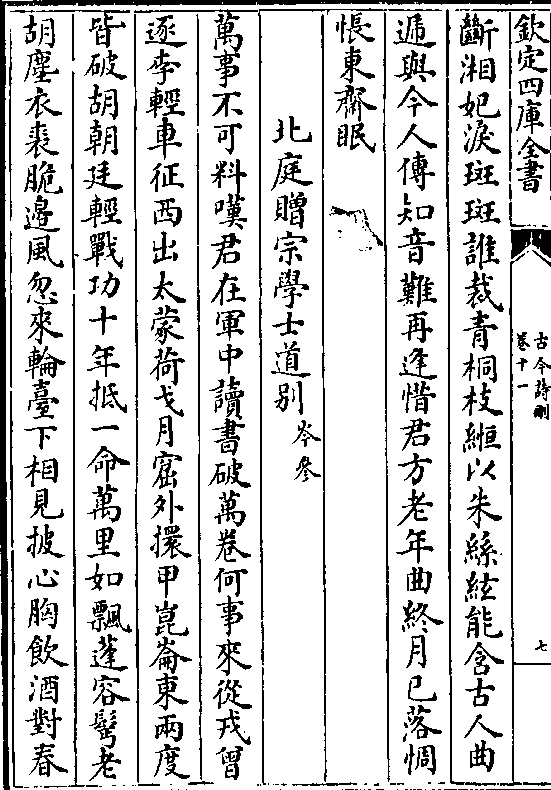 欽定四庫全書
古今詩刪
卷十一
七
斷湘妃淚斑斑誰裁青桐枝縆以朱絲絃能含古人曲
遞與今人傳知音難再逢惜君方老年曲終月已落惆
悵東齋眠
北庭贈宗學士道别
岑參
萬事不可料嘆君在軍中讀書破萬卷何事來從戎曾
逐李輕車征西出太蒙荷戈月窟外擐甲崑崙東兩度
皆破胡朝廷輕戰功十年抵一命萬里如飄蓬容鬢老
胡塵衣裘脆邉風忽來輪臺下相見披心胸飲酒對春